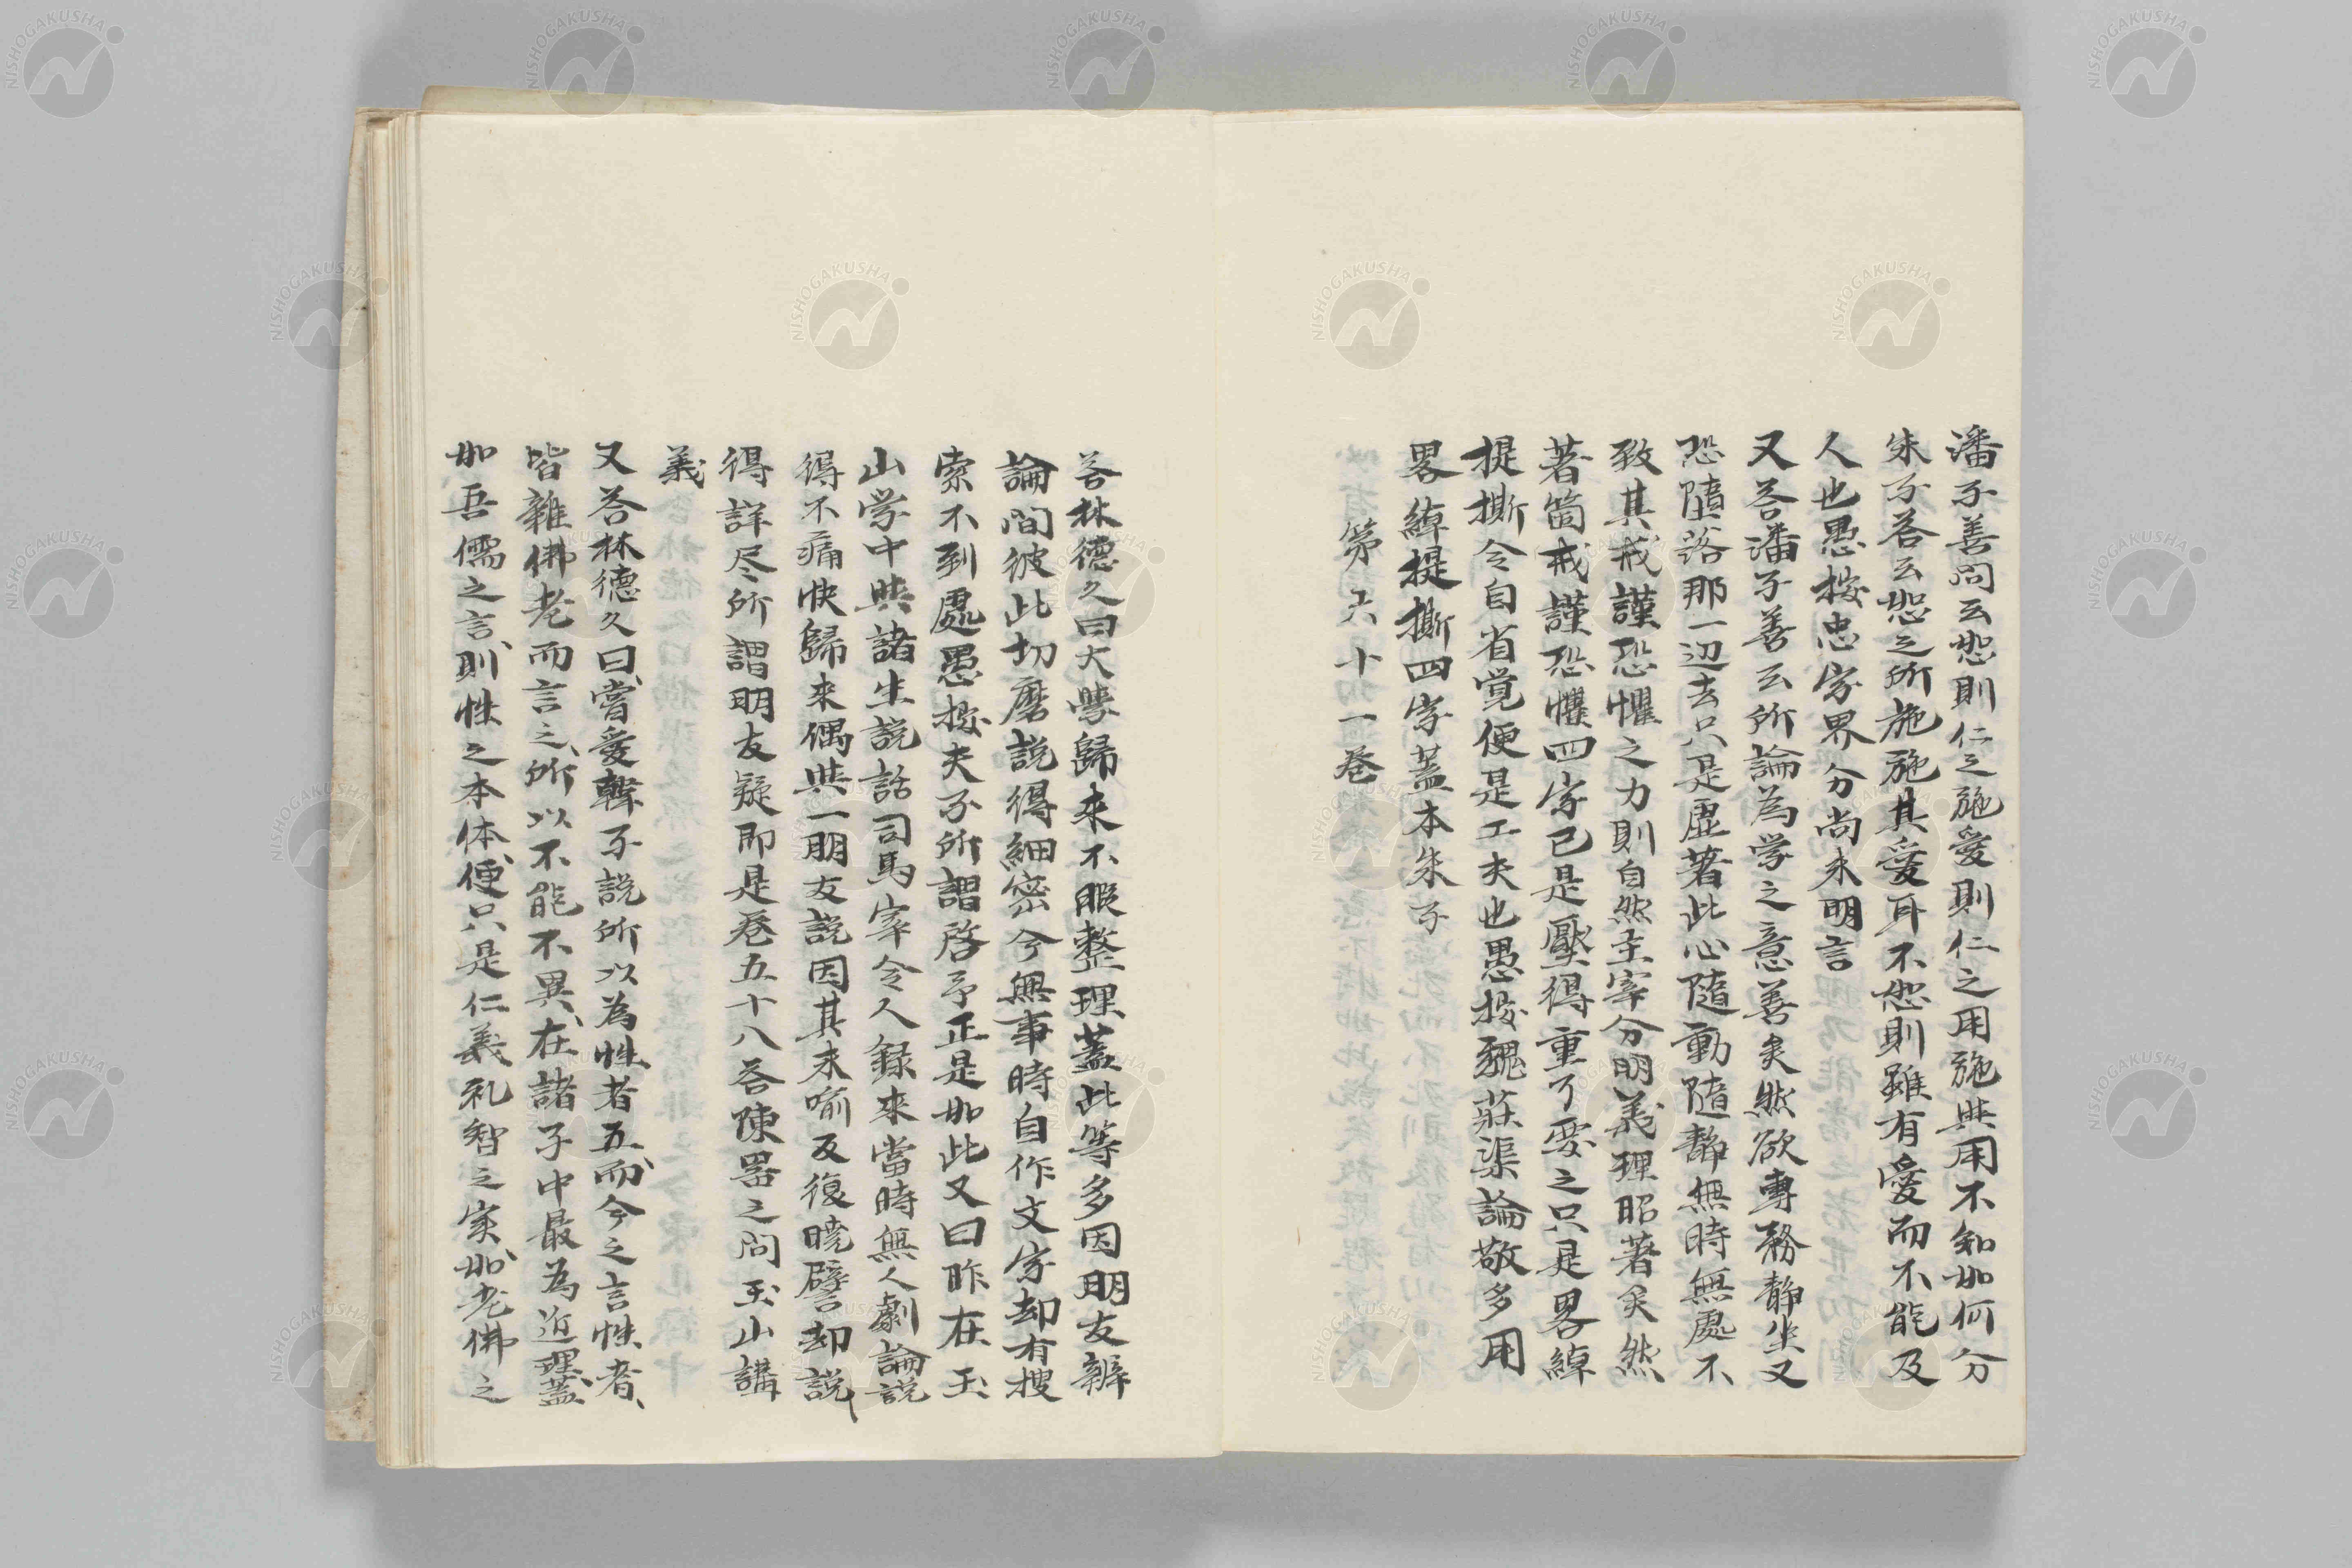 潘子善問云恕則仁之施愛則仁之用施與用不知如何分
朱子答云恕之所施施其愛耳不恕則雖有愛而不能及
人也愚按忠字界分尚未明言
又答潘子善云所論為学之意善矣然欲專務靜坐又
恐墮落那一辺去只是虛著此心隨動隨靜無時無處不
致其戒謹恐懼之力則自然主宰分明義理昭著矣然
著箇戒謹恐懼四字已是壓得重了要之只是畧綽
提撕令自省覚便是工夫也愚按魏莊渠論敬多用
畧綽提撕四字蓋本朱子
第六十一卷
答林德久曰大學歸来不暇整理蓋此等多因朋友辨
論間彼此切磨説得細密今無事時自作文字却有搜
索不到處愚按夫子所謂啓予正是如此又曰昨在玉
山学中與諸生説話司馬宰令人録来當時無人劇論説
得不痛快歸来偶與一朋友説因其未喻反復曉譬却説
得詳尽所謂朋友疑即是卷五十八答陳器之問玉山講
義
又答林德久曰嘗愛韓子説所以為性者五而今之言性者、
皆雜佛老而言之所以不能不異在諸子中最為近理蓋
如吾儒之言則性之本体便只是仁義礼智之実如老佛之